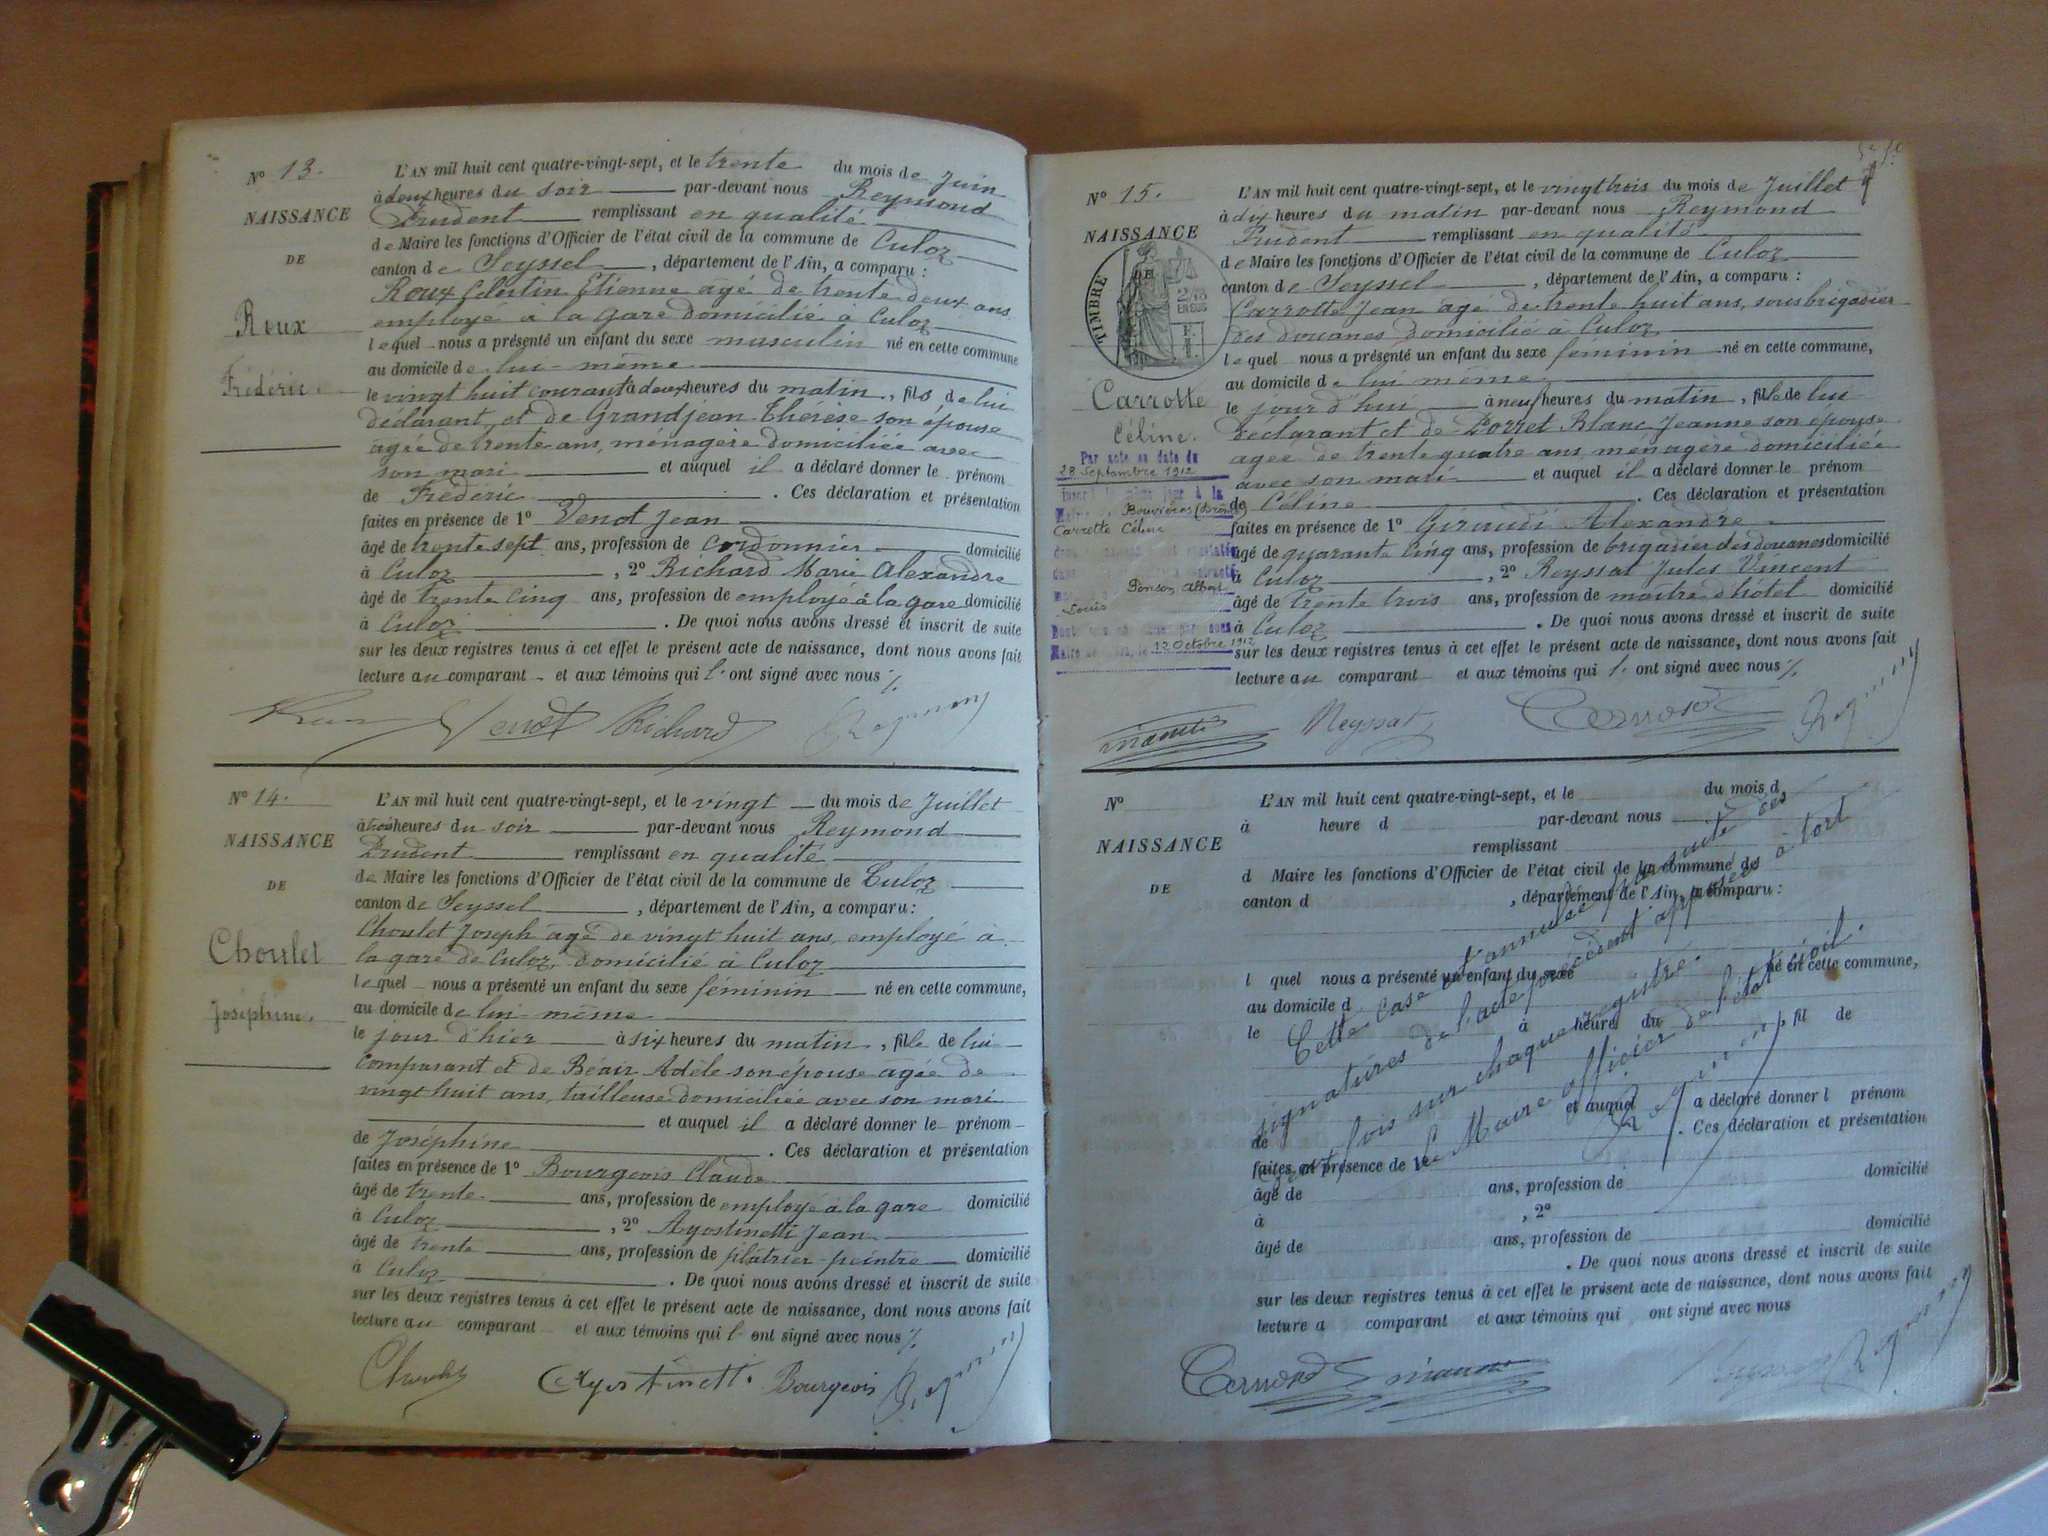 Nº 13.
NAISSANCE
DE
Roux
Frédéric.
L'AN mil huit cent quatre-vingt-sept, et le trente du mois de Juin
à deux heures du soir par-devant nous Reymond
Prudent remplissant en qualité
de Maire les fonctions d'Officier de l'état civil de la commune de Culoz
canton de Seyssel, département de l'Ain, a comparu :
Roux Célestin Etienne agé de trente deux ans
employé a la gare domicilié a Culoz
lequel nous a présenté un enfant du sexe masculin né en cette commune
au domicile de lui-même
le vingt huit courant à deux heures du matin, fils de lui
déclarant et de Grandjean Thérèse son épouse
agée de trente ans, ménagère domiciliée avec
son mari et auquel il a déclaré donner le prénom
de Frédéric. Ces déclaration et présentation
faites en présence de 1º Venot Jean
âgé de trente sept ans, profession de cordonnier domicilié
à Culoz, 2º Richard Marie Alexandre
âgé de trente cinq ans, profession de employé à la gare domicilié
à Culoz. De quoi nous avons dressé et inscrit de suite
sur les deux registres tenus à cet effet le présent acte de naissance, dont nous avons fait
lecture au comparant et aux témoins qui l' ont signé avec nous
Venot Richard Reymond
Nº 14.
NAISSANCE
DE
Choulet
Joséphine.
L'AN mil huit cent quatre-vingt-sept, et le vingt du mois de Juillet
à trois heures du soir par-devant nous Reymond
Prudent remplissant en qualité
de Maire les fonctions d'Officier de l'état civil de la commune de Culoz
canton de Seyssel, département de l'Ain, a comparu :
Choulet Joseph âgé de vingt huit ans, employé à
la gare de Culoz, domicilié à Culoz
lequel nous a présenté un enfant du sexe féminin né en cette commune,
au domicile de lui-même
le jour d'hier à six heures du matin, fille de lui
comparant et de Béair Adèle son épouse agée de
vingt huit ans, tailleuse domiciliée avec son mari
et auquel il a déclaré donner le prénom
de Joséphine. Ces déclaration et présentation
faites en présence de 1º Bourgeois Claude
âgé de trente ans, profession de employé à la gare domicilié
à Culoz, 2º Agostinetti Jean
âgé de trente ans, profession de plâtrier-peintre domicilié
à Culoz. De quoi nous avons dressé et inscrit de suite
sur les deux registres tenus à cet effet le présent acte de naissance, dont nous avons fait
lecture au comparant et aux témoins qui l' ont signé avec nous
Choulet Agostinetti Bourgeois Reymond
Nº 15.
NAISSANCE
DE
TIMBRE
Carrotte
Céline.
Par acte en date du
28 Septembre 1912
Bouvières (Drôme)
Carrotte Céline
Ponson Albert
Louis
12 Octobre 1912
L'AN mil huit cent quatre-vingt-sept, et le vingt trois du mois de Juillet
à dix heures du matin par-devant nous Reymond
Prudent remplissant en qualité
de Maire les fonctions d'Officier de l'état civil de la commune de Culoz
canton de Seyssel, département de l'Ain, a comparu :
Carrotte Jean âgé de trente huit ans, sous brigadier
des douanes domicilié à Culoz
lequel nous a présenté un enfant du sexe féminin né en cette commune,
au domicile de lui même
le jour d'hui à neuf heures du matin, fille de lui
déclarant et de Porret Blanc Jeanne son épouse
agée de trente quatre ans, ménagère domiciliée
avec son mari et auquel il a déclaré donner le prénom
de Céline. Ces déclaration et présentation
faites en présence de 1º Giraudi Alexandre
âgé de quarante cinq ans, profession de brigadier des douanes domicilié
à Culoz, 2º Reyssat Jules Vincent
âgé de trente trois ans, profession de maitre d'hôtel domicilié
à Culoz. De quoi nous avons dressé et inscrit de suite
sur les deux registres tenus à cet effet le présent acte de naissance, dont nous avons fait
lecture au comparant et aux témoins qui l' ont signé avec nous
Reyssat Reymond
Nº
NAISSANCE
DE
L'AN mil huit cent quatre-vingt-sept, et le du mois d
à heure d par-devant nous
remplissant
d Maire les fonctions d'Officier de l'état civil de la commune de
canton d , département de l'Ain, a comparu :
l quel nous a présenté un enfant du sexe né en cette commune,
au domicile d
le à heure du , fil de
et auquel a déclaré donner l prénom
de . Ces déclaration et présentation
faites en présence de 1º
âgé de ans, profession de domicilié
à , 2º
âgé de ans, profession de domicilié
. De quoi nous avons dressé et inscrit de suite
sur les deux registres tenus à cet effet le présent acte de naissance, dont nous avons fait
lecture a comparant et aux témoins qui ont signé avec nous
Cette case est annulée par suite des
signatures de l'acte précédent apposées à tort
fois sur chaque registre.
Le Maire officier de l'état civil.
Reymond
Reymond